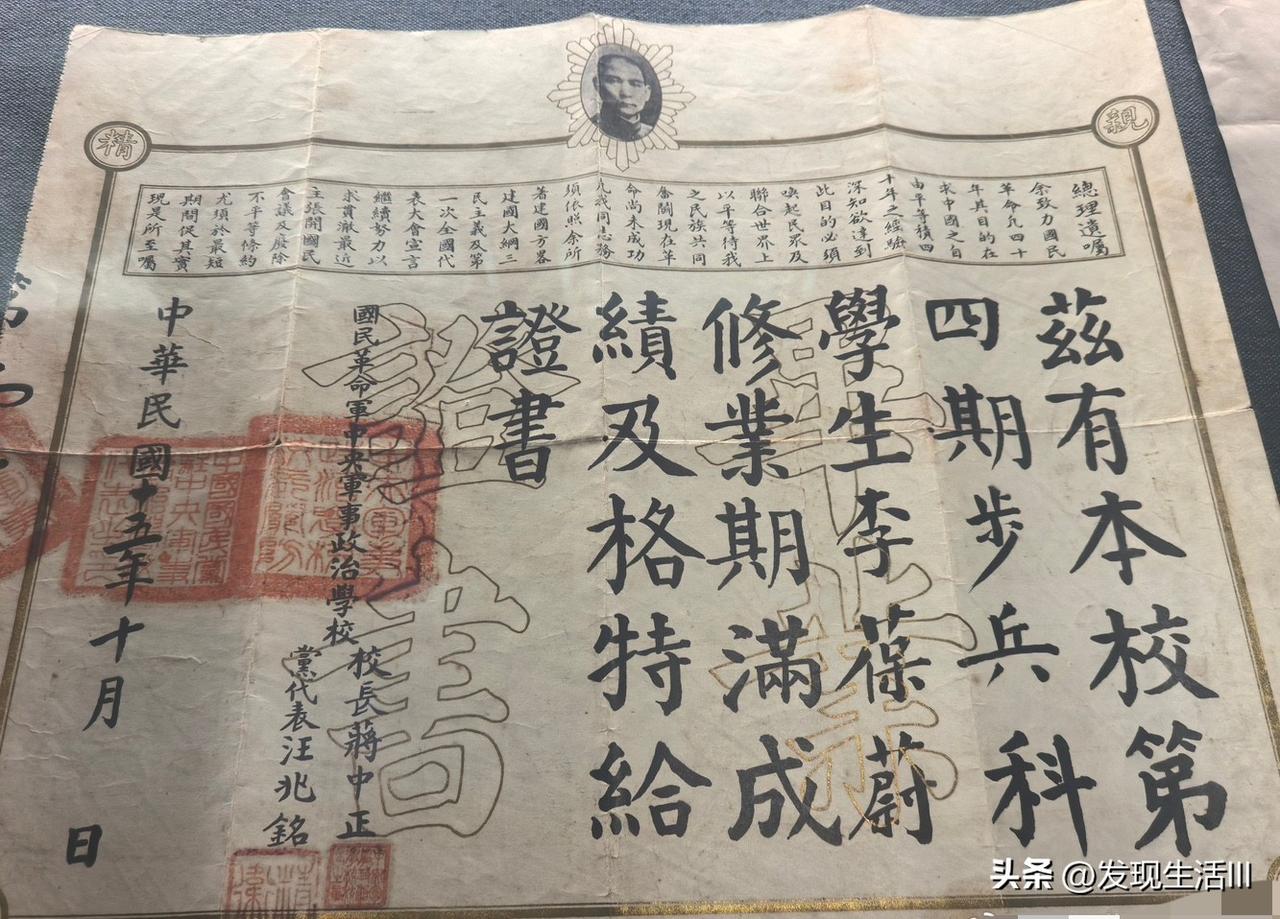 親
精
總理遺囑
余致力國民
革命凡四十
年其目的在
求中國之自
由平等積四
十年之經驗
深知欲達到
此目的必須
喚起民眾及
聯合世界上
以平等待我
之民族共同
奮鬬現在革
命尚未成功
凡我同志務
須依照余所
著建國方畧
建國大綱三
民主義及第
一次全國代
表大會宣言
繼續努力以
求貫澈最近
主張開國民
會議及廢除
不平等條約
尤須於最短
期間促其實
現是所至囑
茲有本校第
四期步兵科
學生李葆蔚
修業期滿成
績及格特給
證書
國民革命軍中央軍事政治學校
校長蔣中正
黨代表汪兆銘
中華民國十五年十月 日
頭条 @发现生活III